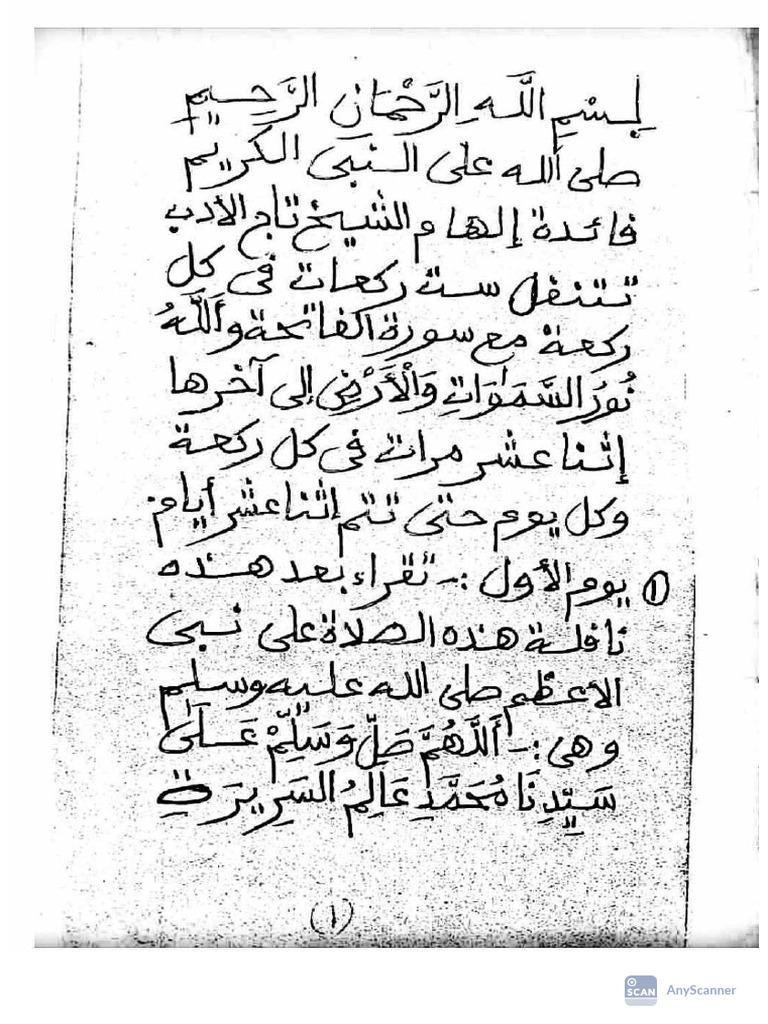 بِسْمِ اللَّهِ الرَّحْمَانِ الرَّحِيمِ
صلى الله على النبى الكريم
فائدة إلهام الشيخ تاج الأدب
تتنفل ست ركعات فى كل
ركعة مع سورة الفاتحة وَاللَّهُ
نُورُ السَّمَوَاتِ وَالْأَرْضِ إلى آخرها
إثنا عشر مرات فى كل ركعة
وكل يوم حتى تتم إثنا عشر أيام
① يوم الأول :- تقراء بعد هذه
نافلة هذه الصلاة على نبى
الأعظم صلى الله عليه وسلم
وهى :- أَللَّهُمَّ صَلِّ وَسَلِّمْ عَلَى
سَيِّدِنَا مُحَمَّدٍ عَالِمُ السَرِيرَةِ
(١)
SCAN AnyScanner